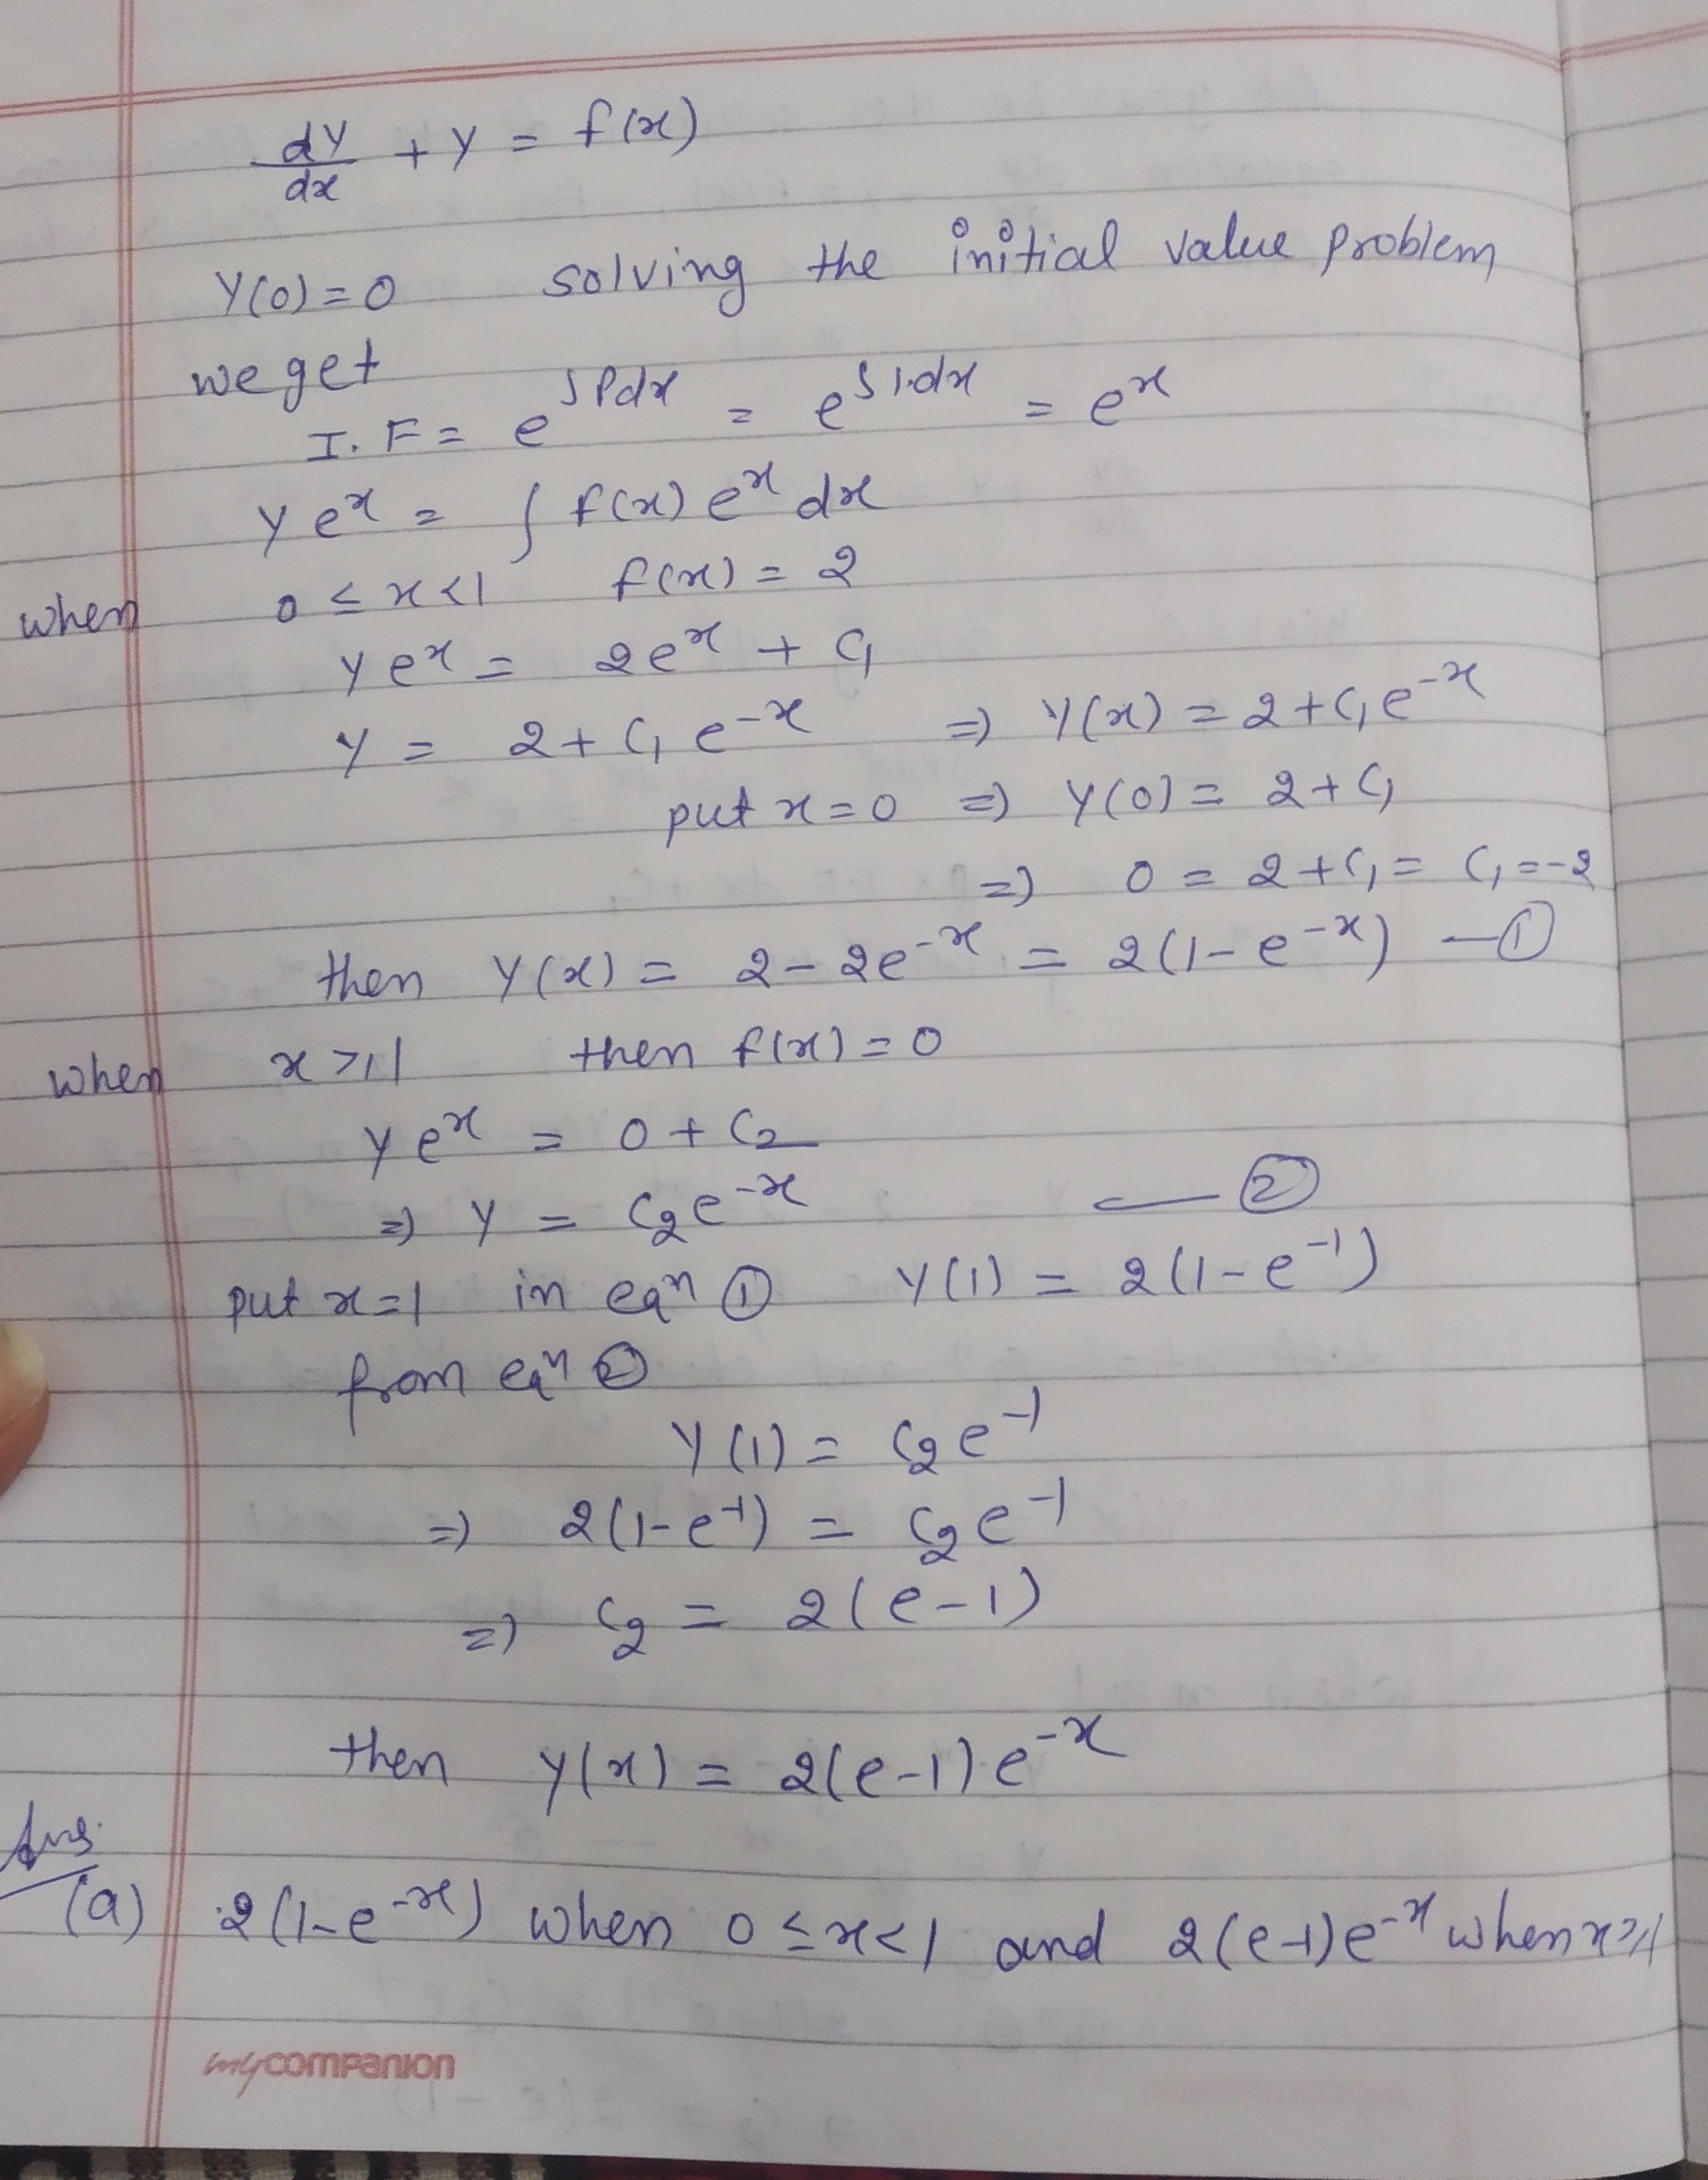 dy/dx + y = f(x)
y(0) = 0 solving the initial value problem
we get
I.F = e^∫Pdx = e^∫1.dx = e^x
y e^x = ∫ f(x) e^x dx
when 0 ≤ x < 1 f(x) = 2
y e^x = 2e^x + C₁
y = 2 + C₁ e^-x ⇒ y(x) = 2 + C₁ e^-x
put x = 0 ⇒ y(0) = 2 + C₁
⇒ 0 = 2 + C₁ = C₁ = -2
then y(x) = 2 - 2e^-x = 2(1 - e^-x) — ①
when x ≥ 1 then f(x) = 0
y e^x = 0 + C₂
⇒ y = C₂ e^-x — ②
put x = 1 in eqⁿ ① y(1) = 2(1 - e^-1)
from eqⁿ ②
y(1) = C₂ e^-1
⇒ 2(1 - e^-1) = C₂ e^-1
⇒ C₂ = 2(e - 1)
then y(x) = 2(e - 1) e^-x
Ans.
(a) 2(1 - e^-x) when 0 ≤ x < 1 and 2(e - 1)e^-x when x ≥ 1
mycompanion